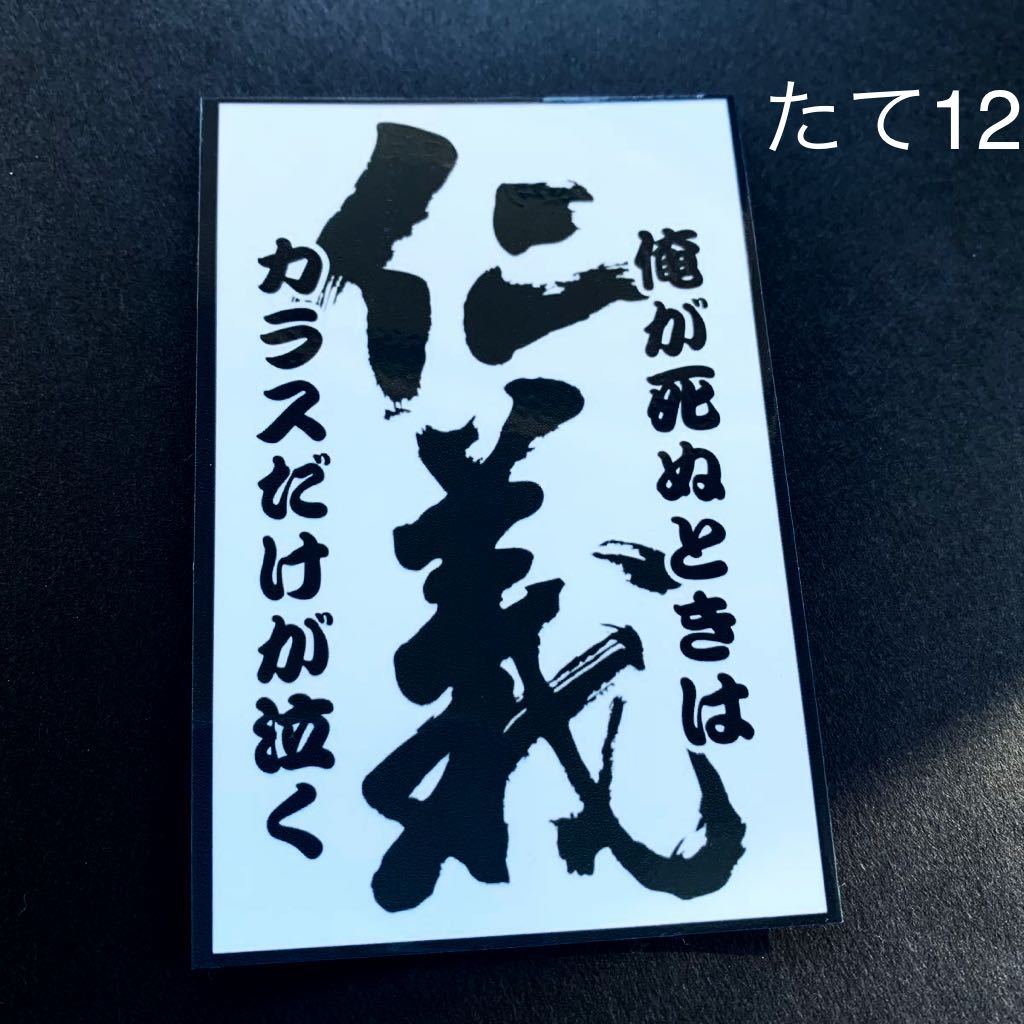 たて12
俺が死ぬときは
仁義
カラスだけが泣く